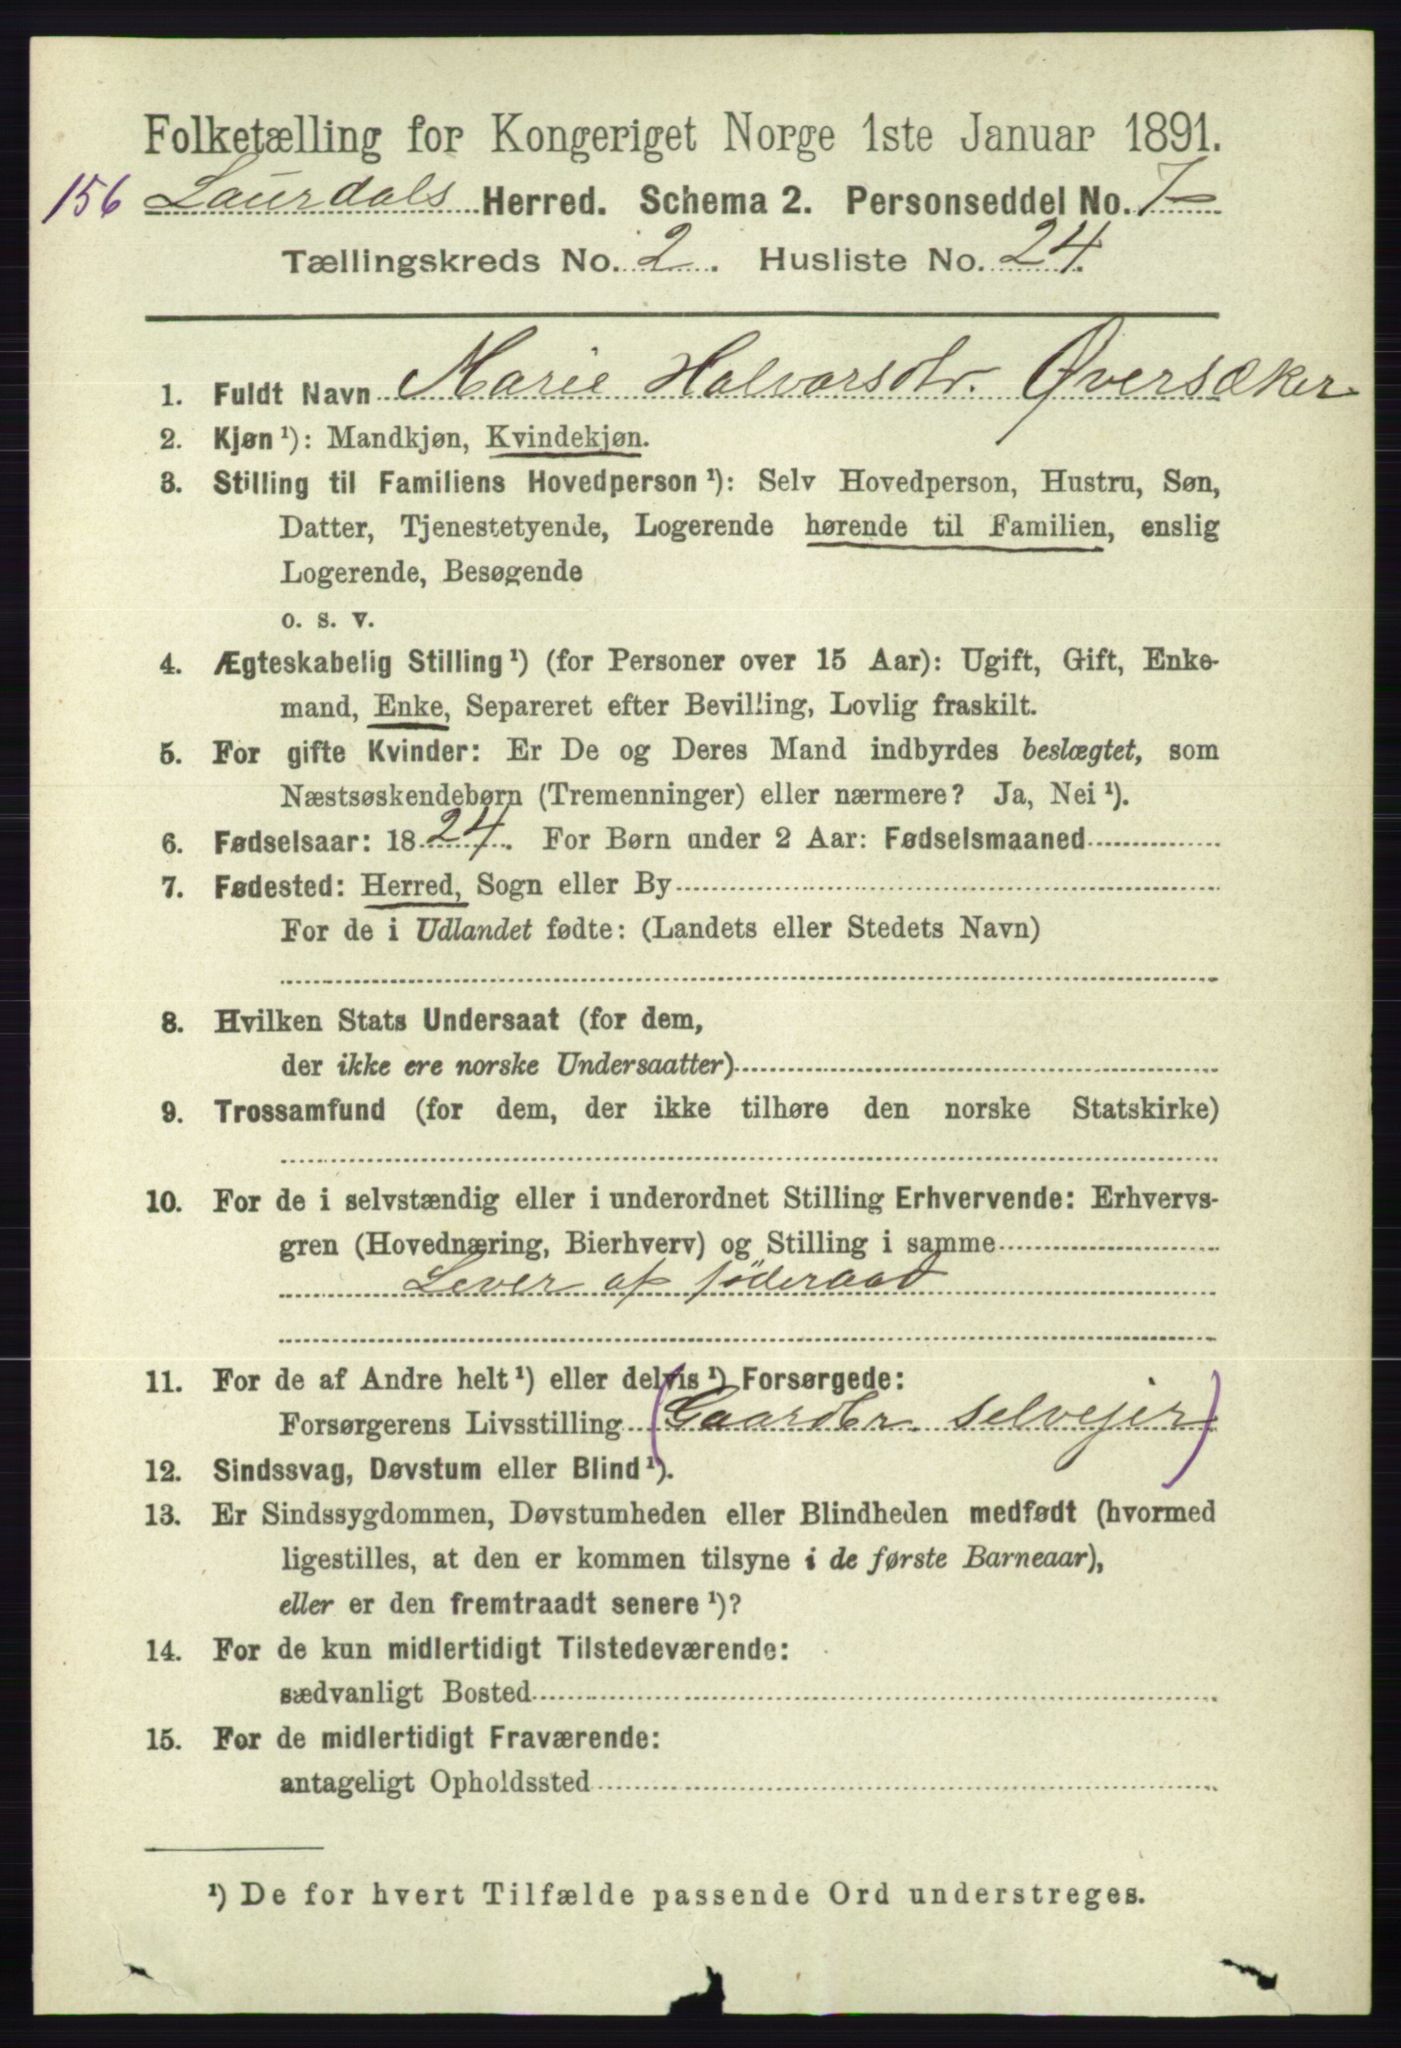 Folketælling for Kongeriget Norge 1ste Januar 1891.
156 Laurdals Herred. Schema 2. Personseddel No. 7
Tællingskreds No. 2. Husliste No. 24.
1. Fuldt Navn Marie Halvorsdtr. Øversaker
2. Kjøn¹): Mandkjøn, Kvindekjøn.
3. Stilling til Familiens Hovedperson¹): Selv Hovedperson, Hustru, Søn,
Datter, Tjenestetyende, Logerende hørende til Familien, enslig
Logerende, Besøgende
o. s. v.
4. Ægteskabelig Stilling¹) (for Personer over 15 Aar): Ugift, Gift, Enke-
mand, Enke, Separeret efter Bevilling, Lovlig fraskilt.
5. For gifte Kvinder: Er De og Deres Mand indbyrdes beslægtet, som
Næstsøskendebørn (Tremenninger) eller nærmere? Ja, Nei¹).
6. Fødselsaar: 1824. For Børn under 2 Aar: Fødselsmaaned
7. Fødested: Herred, Sogn eller By
For de i Udlandet fødte: (Landets eller Stedets Navn)
8. Hvilken Stats Undersaat (for dem,
der ikke ere norske Undersaatter)
9. Trossamfund (for dem, der ikke tilhøre den norske Statskirke)
10. For de i selvstændig eller i underordnet Stilling Erhvervende: Erhvervs-
gren (Hovednæring, Bierhverv) og Stilling i samme
Lever af föderaad
11. For de af Andre helt¹) eller delvis¹) Forsørgede:
Forsørgerens Livsstilling (Gaardbr. selvejer)
12. Sindssvag, Døvstum eller Blind¹).
13. Er Sindssygdommen, Døvstumheden eller Blindheden medfødt (hvormed
ligestilles, at den er kommen tilsyne i de første Barneaar),
eller er den fremtraadt senere¹)?
14. For de kun midlertidigt Tilstedeværende:
sædvanligt Bosted
15. For de midlertidigt Fraværende:
antageligt Opholdssted
¹) De for hvert Tilfælde passende Ord understreges.